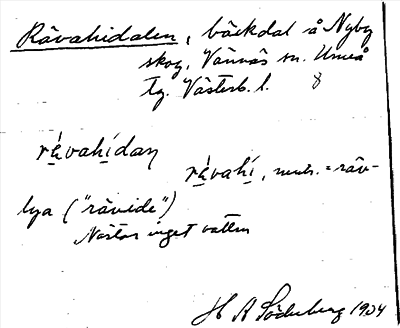 Rävahidalen, bäckdal å Nyby
skog, Vännäs sn. Umeå
tg. Västerb. l. 8
révahídan
révahí, mask. = räv-
lya ("rävide")
Nästan inget vatten
H A Söderberg 1934